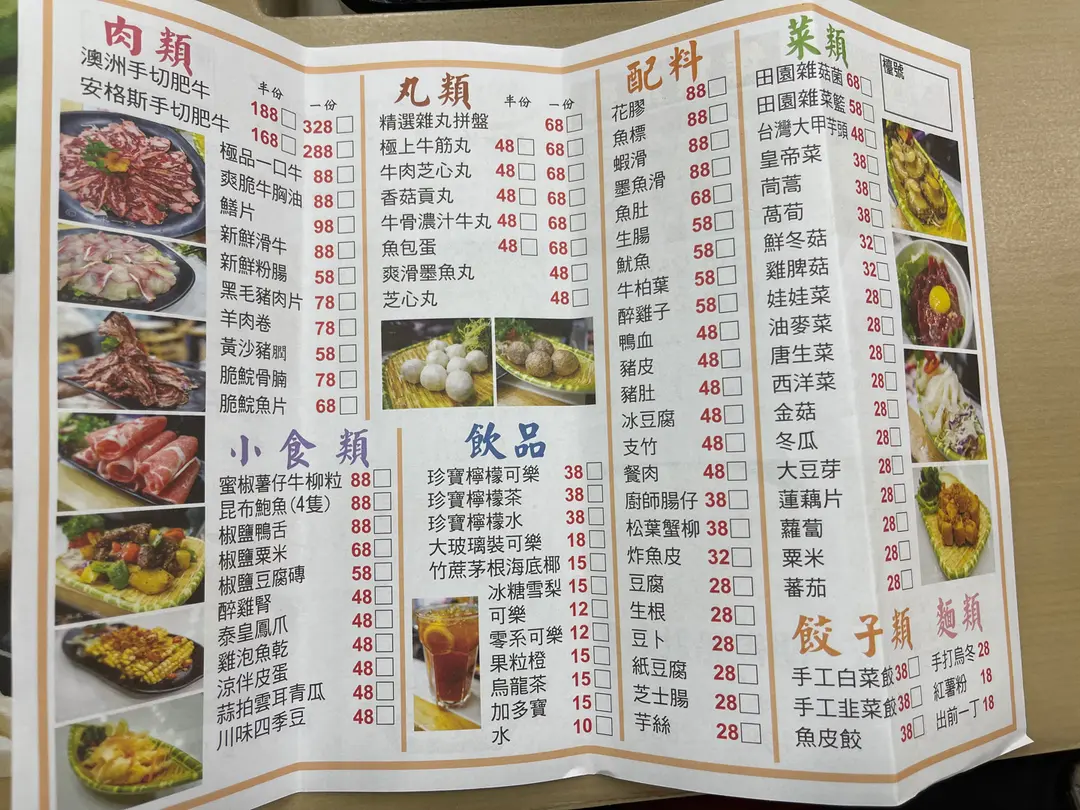 肉類
半份 一份
澳洲手切肥牛 188 328
安格斯手切肥牛 168 288
極品一口牛 88
爽脆牛胸油 88
鱔片 98
新鮮滑牛 88
新鮮粉腸 58
黑毛豬肉片 78
羊肉卷 78
黃沙豬膶 58
脆鯇骨腩 78
脆鯇魚片 68
丸類
半份 一份
精選雜丸拼盤 68
極上牛筋丸 48 68
牛肉芝心丸 48 68
香菇貢丸 48 68
牛骨濃汁牛丸 48 68
魚包蛋 48 68
爽滑墨魚丸 48
芝心丸 48
小食類
蜜椒薯仔牛柳粒 88
昆布鮑魚(4隻) 88
椒鹽鴨舌 88
椒鹽粟米 68
椒鹽豆腐磚 58
醉雞腎 48
泰皇鳳爪 48
雞泡魚乾 48
涼伴皮蛋 48
蒜拍雲耳青瓜 48
川味四季豆 48
飲品
珍寶檸檬可樂 38
珍寶檸檬茶 38
珍寶檸檬水 38
大玻璃裝可樂 18
竹蔗茅根海底椰 15
冰糖雪梨 15
可樂 12
零系可樂 12
果粒橙 15
烏龍茶 15
加多寶 15
水 10
配料
花膠 88
魚標 88
蝦滑 88
墨魚滑 88
魚肚 68
生腸 58
魷魚 58
牛柏葉 58
醉雞子 58
鴨血 48
豬皮 48
豬肚 48
冰豆腐 48
支竹 48
餐肉 48
廚師腸仔 38
松葉蟹柳 38
炸魚皮 32
豆腐 28
生根 28
豆卜 28
紙豆腐 28
芝士腸 28
芋絲 28
菜類
檯號
田園雜菇菌 68
田園雜菜籃 58
台灣大甲芋頭 48
皇帝菜 38
茼蒿 38
萵筍 38
鮮冬菇 32
雞脾菇 32
娃娃菜 28
油麥菜 28
唐生菜 28
西洋菜 28
金菇 28
冬瓜 28
大豆芽 28
蓮藕片 28
蘿蔔 28
粟米 28
蕃茄 28
餃子類
手工白菜餃 38
手工韭菜餃 38
魚皮餃 38
麵類
手打烏冬 28
紅薯粉 18
出前一丁 18